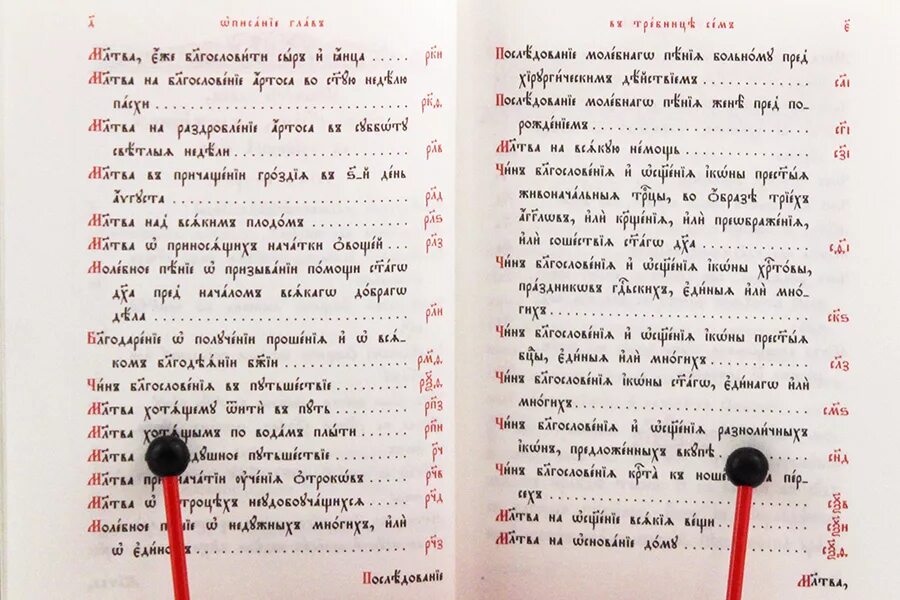 д҃ Ѡ҆писанїе гла́въ
Мл҃тва, є҆́же благословити сы́ръ и҆ ꙗ҆ица . . . рк҃и
Мл҃тва на благословенїе а҆ртоса во ст҃ую недѣлю
пасхи . . . рк҃ѳ
Мл҃тва на раздробленїе а҆ртоса въ суббѡту
свѣтлыѧ недѣли . . . рл҃в
Мл҃тва въ причащенїи гроздїѧ въ ѕ҃-й день
а҆ѵгуста . . . рл҃д
Мл҃тва над всѧкимъ плодомъ . . . рл҃ѕ
Мл҃тва ѡ҆ приносѧщихъ начатки ѻ҆вощей . . . рл҃з
Молебное пѣнїе ѡ҆ призыванїи помощи ст҃агѡ
дх҃а пред началомъ всѧкагѡ добрагѡ
дѣла . . . рл҃и
Благодаренїе ѡ҆ полученїи прошенїѧ и҆ ѡ҆ всѧ-
комъ бл҃годѣѧнїи бж҃їи . . . рм҃ѳ
Чинъ благословенїѧ въ путьшествїе . . . рѯ҃ѳ
Мл҃тва хотѧщему ѿити въ путь . . . рп҃з
Мл҃тва хотѧщымъ по водамъ плыти . . . рп҃и
Мл҃тва душное путьшествїе . . . рч҃
Мл҃тва при начатїи ᲂу҆ченїѧ ѻ҆трокѡвъ . . . рч҃в
Мл҃тва ѡ҆ ѻ҆троцѣхъ неудобоучащихсѧ . . . рч҃д
Молебное пѣнїе ѡ҆ недужныхъ многихъ, и҆ли
ѡ҆ є҆диномъ . . . рч҃з
Послѣдованїе
въ требницѣ се́мъ є҃
Послѣдованїе молебнагѡ пѣнїѧ больному пред
хїрургическимъ дѣйствїемъ . . . са҃і
Послѣдованїе молебнагѡ пѣнїѧ женѣ пред по-
рожденїемъ . . . сг҃і
Мл҃тва на всѧкую немощь . . . сз҃і
Чинъ благословенїѧ и҆ ѡ҆сщ҃енїѧ і҆кѡны прест҃ыѧ
живоначальныѧ трⷪ҇цы, во ѻ҆бразѣ трїехъ
а҆гг҃лѡвъ, и҆ли крщ҃енїѧ, и҆ли преѡбраженїѧ,
и҆ли сошествїѧ ст҃агѡ дх҃а . . . сѳ҃і
Чинъ благословенїѧ и҆ ѡ҆сщ҃енїѧ і҆кѡны хрⷭ҇товы,
праздникѡвъ гдⷭ҇скихъ, є҆диныѧ и҆ли мно-
гихъ . . . ск҃ѕ
Чинъ благословенїѧ и҆ ѡ҆сщ҃енїѧ і҆кѡны прест҃ыѧ
бцⷣы, є҆диныѧ и҆ли многихъ . . . сл҃з
Чинъ благословенїѧ і҆кѡны ст҃агѡ, є҆динагѡ и҆ли
многихъ . . . см҃ѕ
Чинъ благословенїѧ и҆ ѡ҆сщ҃енїѧ разноличныхъ
і҆кѡнъ, предложенныхъ вкупѣ . . . сн҃д
Чинъ благословенїѧ крⷭ҇та къ ношенїю на пер-
сехъ . . . сѯ҃в
Мл҃тва на ѡ҆сщ҃енїе всѧкїѧ вещи . . . сѯ҃и
Мл҃тва на ѡ҆снованїе дому . . . сѯ҃ѳ
Мл҃тва,